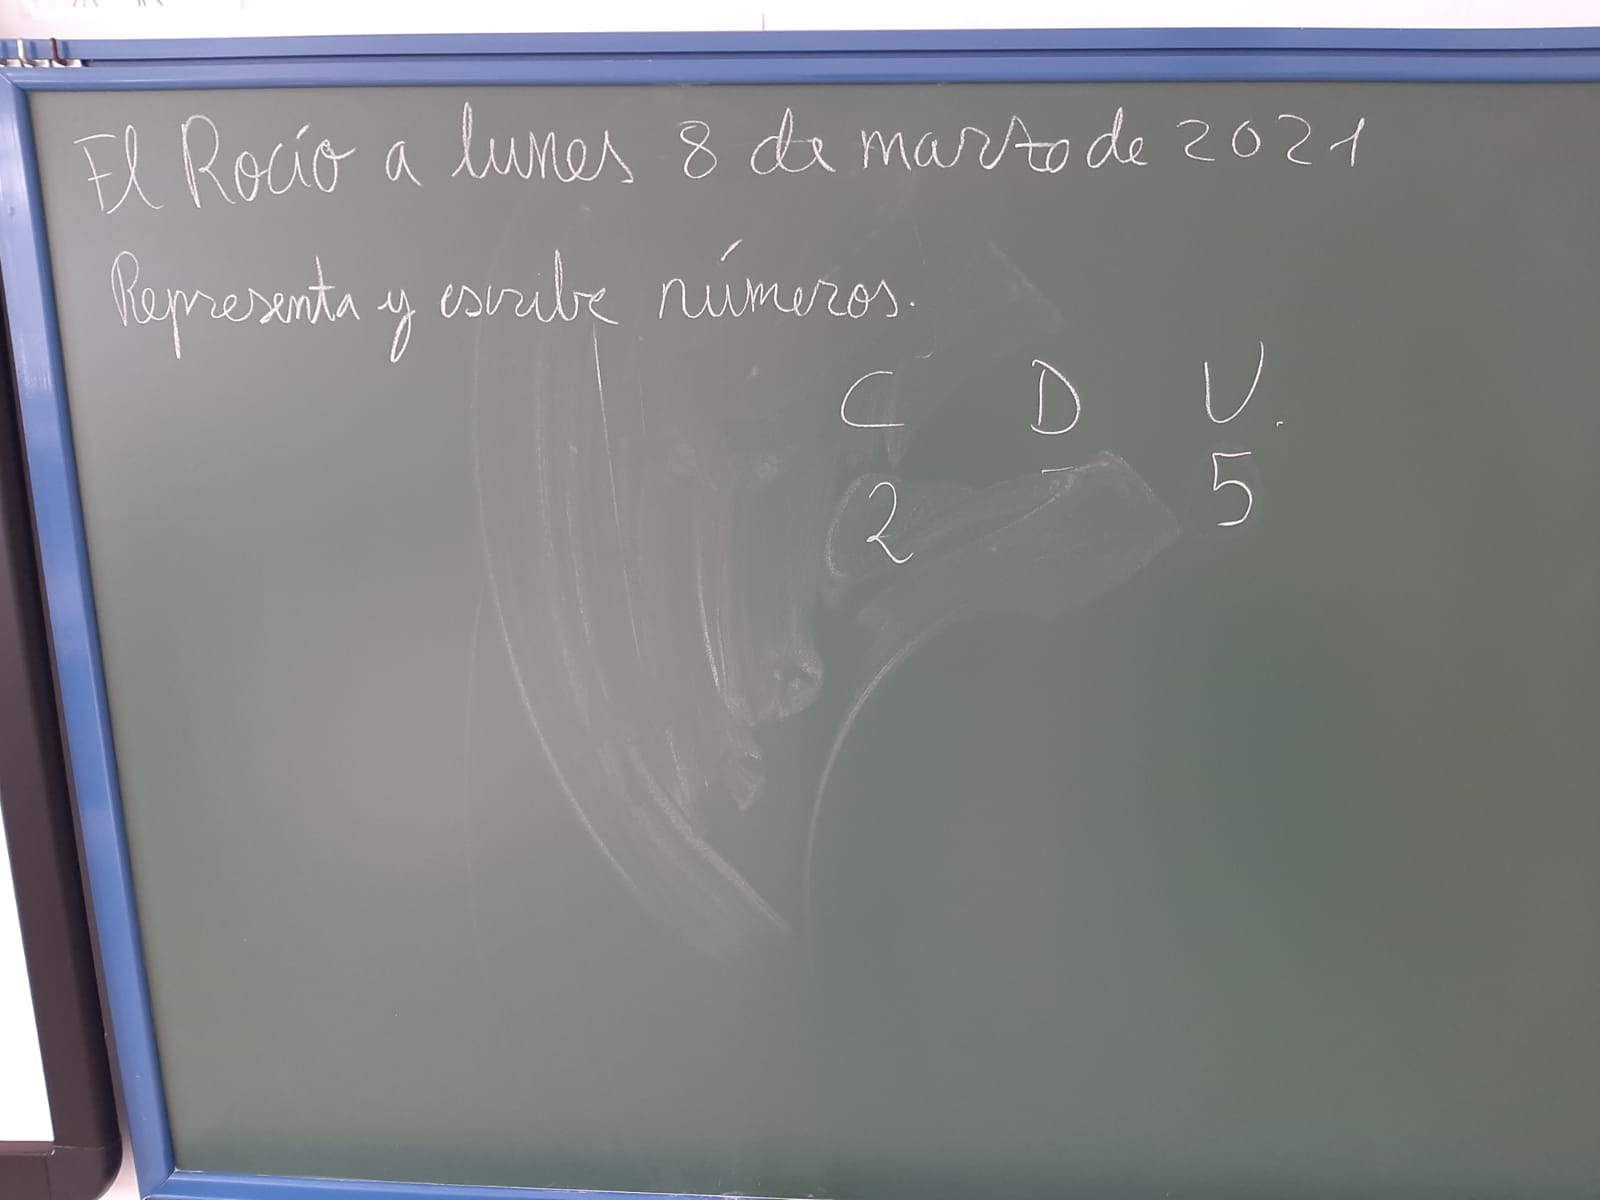 El Rocío a lunes 8 de marzo de 2021
Representa y escribe números.
C D U.
2 - 5